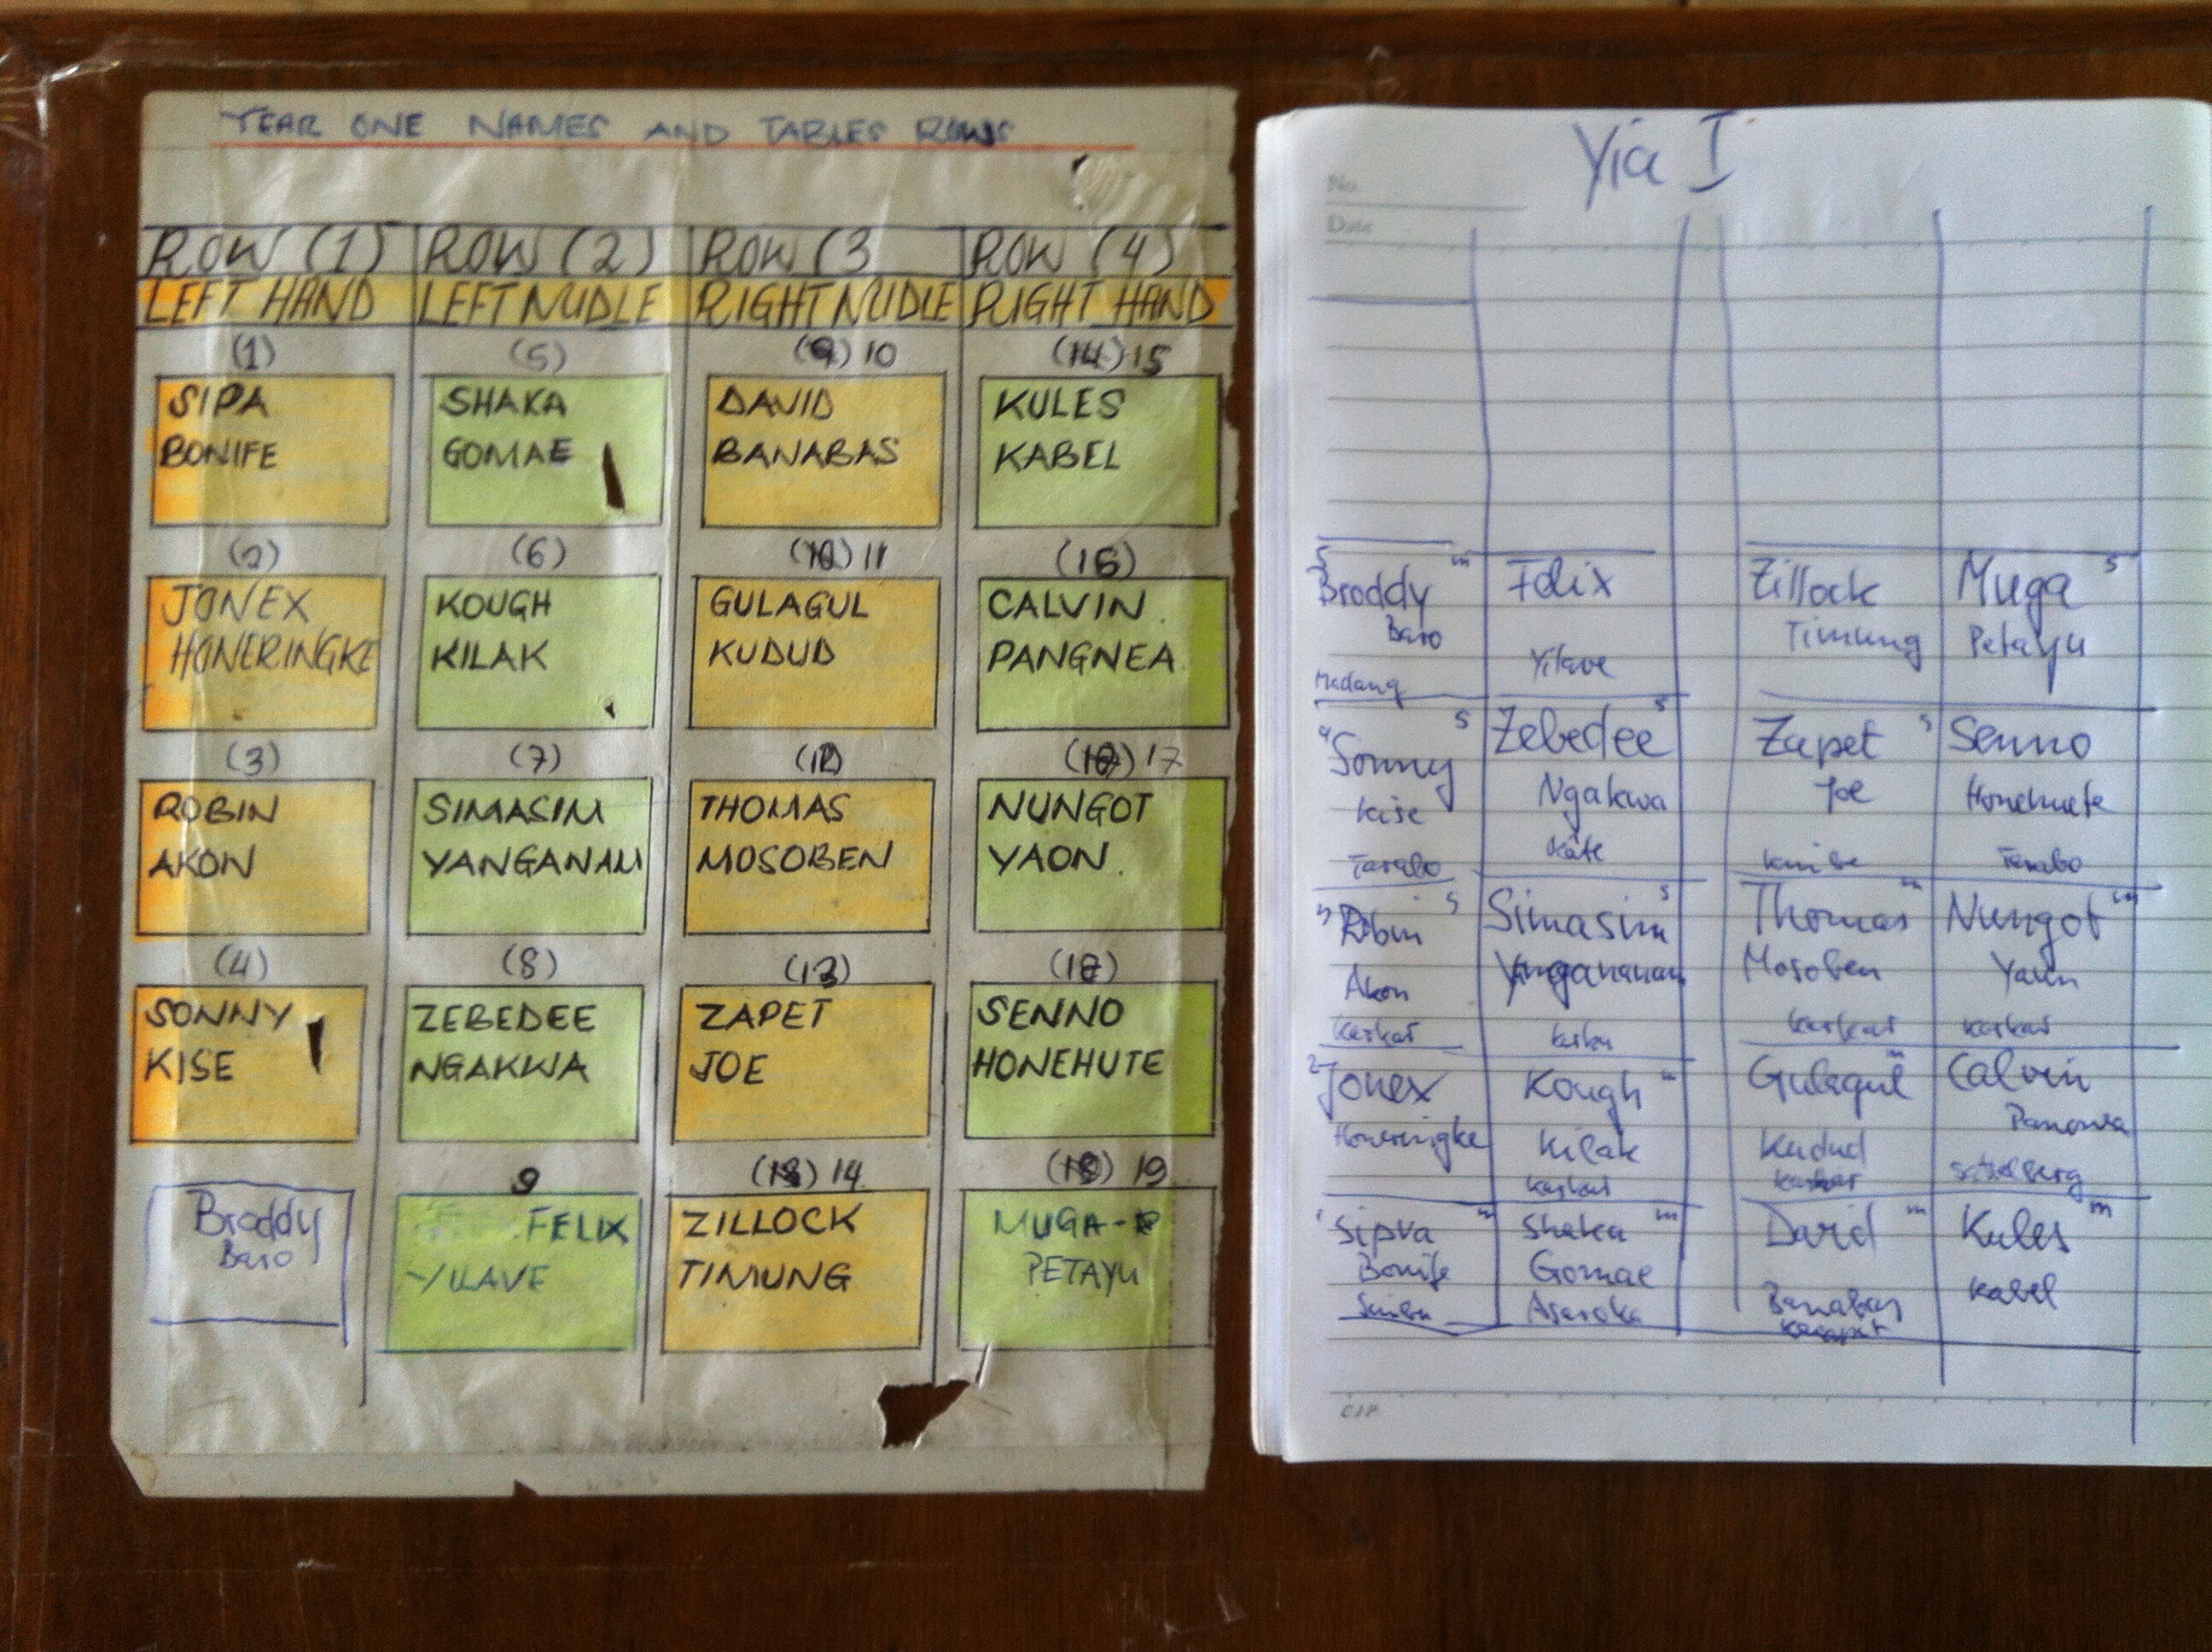 YEAR ONE NAMES AND TABLES ROWS
ROW (1) ROW (2) ROW (3 ROW (4)
LEFT HAND LEFT MIDLE RIGHT MIDLE RIGHT HAND
(1) (5) 10 15
SIPA SHAKA DAVID KULES
BONIFE GOMAE BANABAS KABEL
(2) (6) 11 (16)
JONEX KOUGH GULAGUL CALVIN
HONERINGKE KILAK KUDUD PANGNEA
(3) (7) (12) 17
ROBIN SIMASIM THOMAS NUNGOT
AKON YANGANAM MOSOBEN YAON
(4) (8) (13) (18)
SONNY ZEBEDEE ZAPET SENNO
KISE NGAKWA JOE HONEHUTE
9 14 19
Broddy FELIX ZILLOCK MUGA
Baro YILAVE TIMUNG PETAYU
Yia I
No.
Date
5 Broddy m Felix Zillock Muga s
Baro Yilave Timung Petayu
Madang
4 Sonny s Zebedee s Zapet s Senno
Kise Ngakwa Joe Honehute
Tarabo Kate Tarabo
3 Robin s Simasim s Thomas m Nungot m
Akon Yanganam Mosoben Yaon
Karkar Karkar Karkar
2 Jonex Kough m Gulagul m Calvin
Honeringke Kilak Kudud
Karkar Karkar
1 Sipva m Shaka m David m Kules m
Bonife Gomae Banabas Kabel
Asaroka